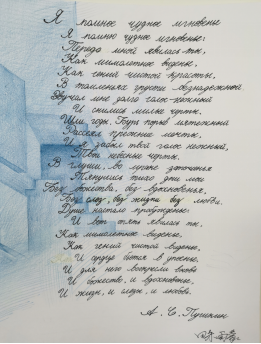 Я помню чудное мгновенье
Я помню чудное мгновенье:
Передо мной явилась ты,
Как мимолетное виденье,
Как гений чистой красоты,
В томленьях грусти безнадежной
Звучал мне долго голос нежный
И снились милые черты.
Шли годы. Бурь порыв мятежный
Рассеял прежние мечты,
И я забыл твой голос нежный,
Твои небесные черты.
В глуши, во мраке заточенья
Тянулись тихо дни мои
Без божества, без вдохновенья,
Без слез, без жизни, без любви.
Душе настало пробужденье:
И вот опять явилась ты,
Как мимолетное виденье,
Как гений чистой
И сердце бьется в упоенье,
И для него воскресли вновь
И божество, и вдохновенье,
И жизнь, и слезы, и любовь.
А. С. Пушкин